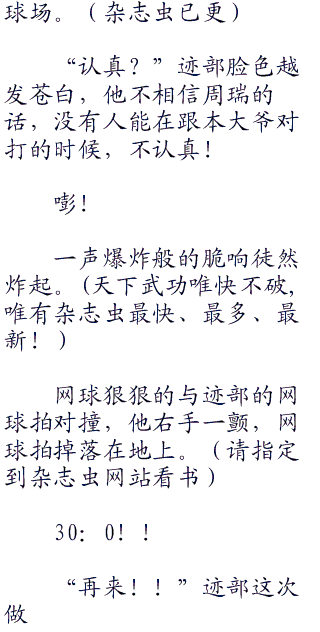 球场。（杂志虫已更）
“认真？”迹部脸色越
发苍白，他不相信周瑞的
话，没有人能在跟本大爷对
打的时候，不认真！
嘭！
一声爆炸般的脆响徒然
炸起。(天下武功唯快不破,
唯有杂志虫最快、最多、最
新！）
网球狠狠的与迹部的网
球拍对撞，他右手一颤，网
球拍掉落在地上。（请指定
到杂志虫网站看书）
30：0！！
“再来！！”迹部这次
做